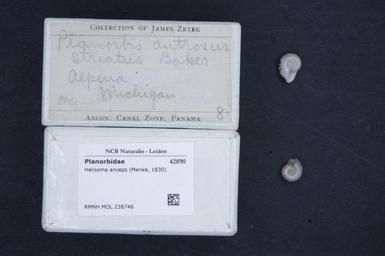 COLLECTION OF JAMES ZETEK
Planorbis antrosus
striatus Baker
Alpena
Michigan
8-
ANCON, CANAL ZONE, PANAMA
NCB Naturalis - Leiden
Planorbidae 42890
Helisoma anceps (Menke, 1830)
RMNH.MOL.238746